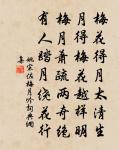 梅花得月太清生
月得梅花越样明
梅月萧疏两奇绝
有人踏月绕花行
姚宋佐梅月吟词典网
集